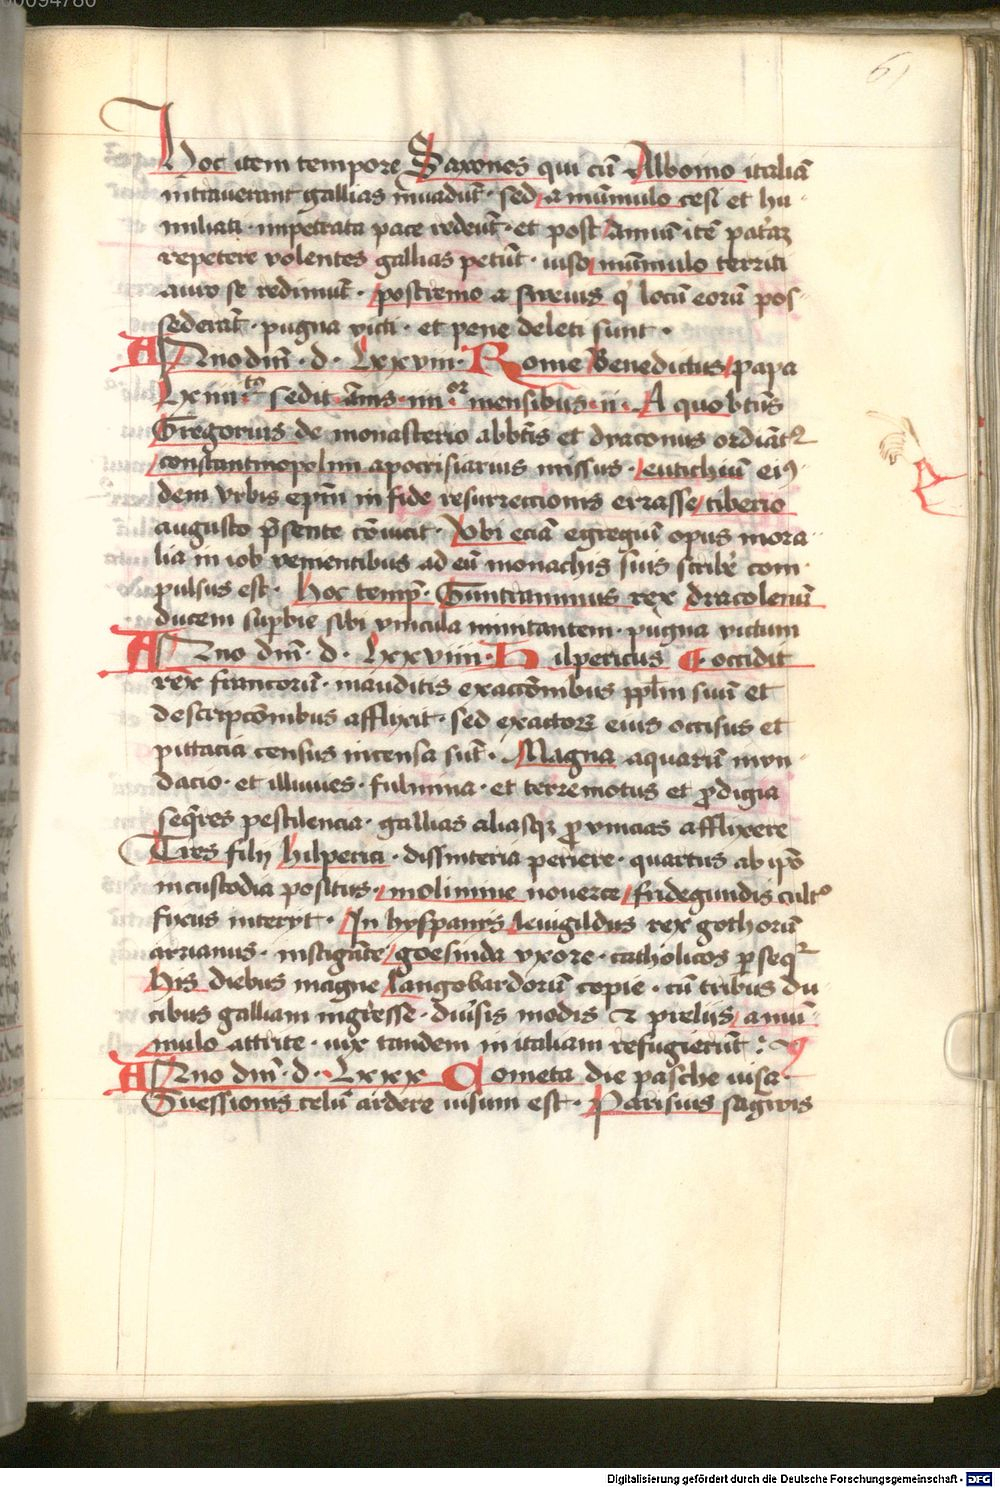 61
Hoc item tempore Saxones qui cū Alboino italiā
intrauerant gallias inuadūt · sed a mūmulo cesi et hu-
miliati · impetrata pace redeūt · et post annū itē patriaz
repetere volentes gallias petūt · uiso mūmulo territi
auro se redimūt · postremo a sweuis q locū eorū pos-
sederāt · pugna victi · et pene deleti sunt ·
Anno dni · d · Lxxviii · Rome Benedictus papa
Lxiiii to sedit annis · iiii or mensibus · ii · A quo btūs
Gregorius de monasterio abbtis et draconus ordiāt
constantinopolim apocrisiarius missus · eutichiū ei9
dem vrbis epm in fide resurrectionis errasse tiberio
augusto psente cōuicit · Vbi eciā egregiū opus mora-
lia in iob vementibus ad eū monachis suis scribe com-
pulsus est · hoc temp · Guntrammus rex dracolenū
ducem supbie sibi vincula minitantem · pugna victum
Anno dni · d · Lxxviiii · Hilpericus occidit
rex francorū · inauditis exactōnibus pplm suū et
descripcōnibus afflixit · sed exactorz eius occisus et
pittacia census incensa sūt · Magna aquarū inun-
dacio · et illuuies · fulmina · et terremotus et prodigia
seqnres pestilencia · gallias aliasqz prouincias afflixere
Tres filij hilperici · dissinteria periere · quartus ab ipso
in custodia positus · molimine nouerce fridegundis cult°
fixus interijt · In hyspanijs leuigildus rex gothorū
arrianus · instigāte goesinda vxore · catholicos pseqr
his diebus magne langobardorū copie · cū tribus du-
cibus galliam ingresse · diuisis modis et preliis a mū-
mulo attrite · uix tandem in italiam refugierūt :
Anno dni · d · Lxxx Cometa die pasche uisa ·
Suessionis celū ardere uisum est · Parisius sagwis
Digitalisierung gefördert durch die Deutsche Forschungsgemeinschaft - DFG